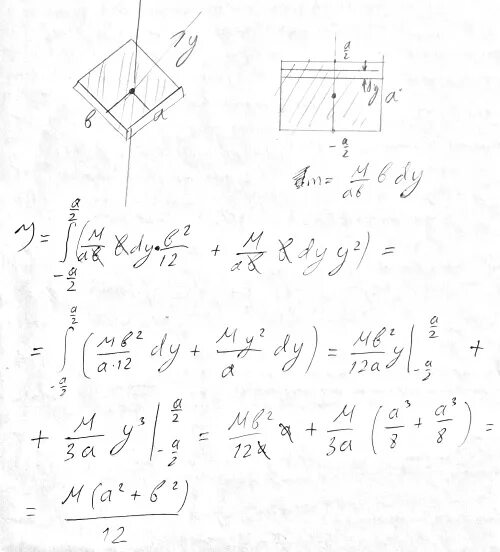 y
в a
a/2
dy a
-a/2
dm = M/(aв) в dy
Y = ∫_{-a/2}^{a/2} (M/(aв) в dy · в²/12 + M/(aв) в dy y²) =
= ∫_{-a/2}^{a/2} (Mв²/(a·12) dy + My²/a dy) = Mв²/(12a) y |_{-a/2}^{a/2} +
+ M/(3a) y³ |_{-a/2}^{a/2} = Mв²/(12a) a + M/(3a) (a³/8 + a³/8) =
= M(a² + в²)/12